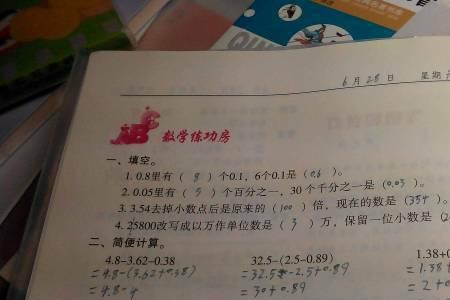 QIN
6月28日 星期
ABC
数学练功房
一、填空。
1. 0.8里有（8）个0.1，6个0.1是（0.6）。
2. 0.05里有（5）个百分之一，30个千分之一是（0.03）。
3. 3.54去掉小数点后是原来的（100）倍，现在的数是（354）
4. 25800改写成以万作单位数是（3）万，保留一位小数是（2
二、简便计算。
4.8-3.62-0.38 32.5-(2.5-0.89) 1.38+0
=4.8-(3.62+0.38) =32.5-2.5+0.89 =1.38+
=4.8-4 =30+0.89 =2+0